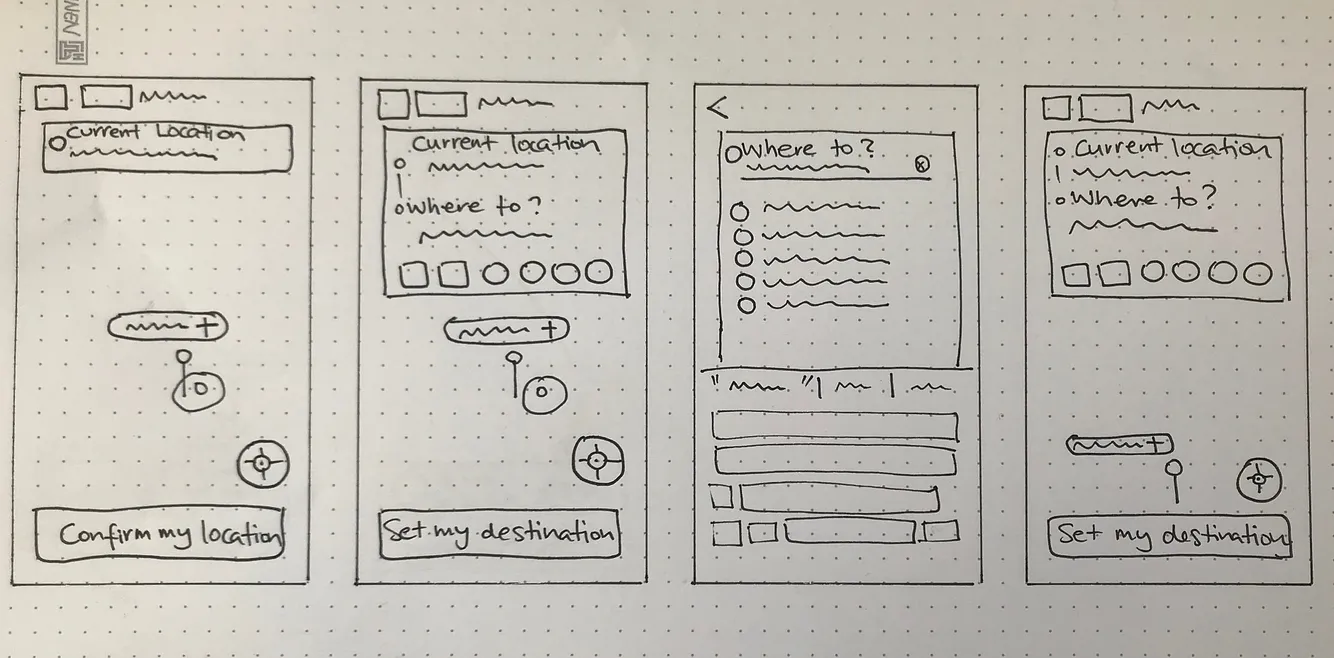 Current Location
Confirm my location
Current location
Where to?
Set my destination
<
Where to?
Current location
Where to?
Set my destination